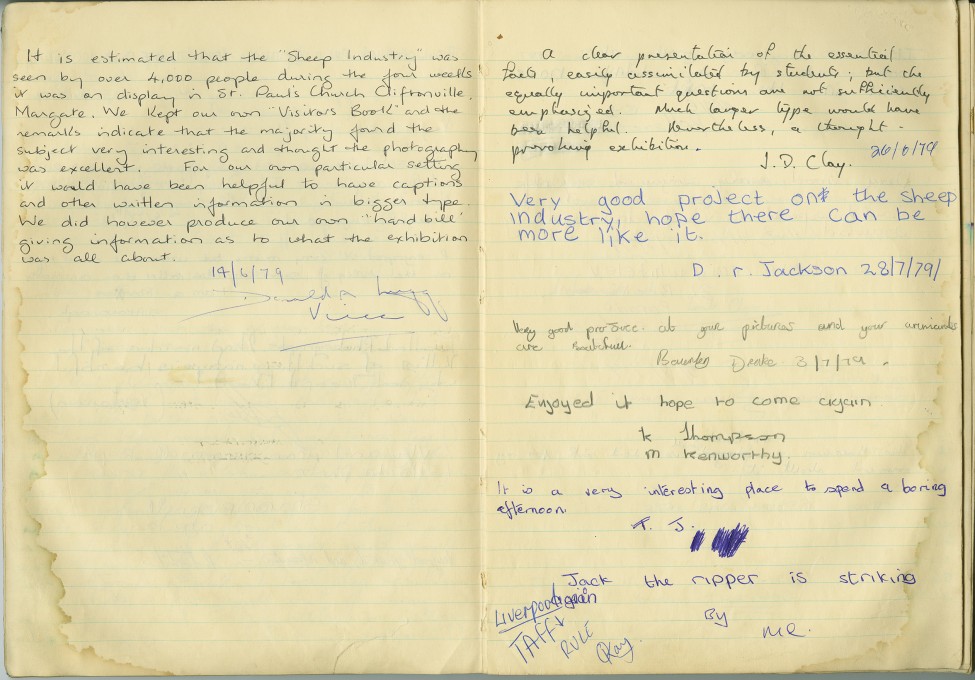 It is estimated that the "Sheep Industry" was
seen by over 4,000 people during the four weeks
it was on display in St. Paul's Church Cliftonville.
Margate. We kept our own "Visitors Book" and the
remarks indicate that the majority found the
subject very interesting and thought the photography
was excellent. For our own particular setting
it would have been helpful to have captions
and other written information in bigger type.
We did however produce our own "hand bill"
giving information as to what the exhibition
was all about.
14/6/79
Donald
A clear presentation of the essential
facts, easily assimilated by students; but the
equally important questions are not sufficiently
emphasised. Much larger type would have
been helpful. Nevertheless, a thought-
provoking exhibition.
J. D. Clay. 26/6/79
Very good project on the sheep
industry, hope there can be
more like it.
D. r. Jackson 28/7/79/
Very good your pictures and your
are
Drake 3/7/79.
Enjoyed it hope to come again
k Thompson
m Kenworthy.
It is a very interesting place to spend a boring
afternoon
T. J.
Jack the ripper is striking
again
By
MR.
Liverpool
TAFF
RULE
Okay